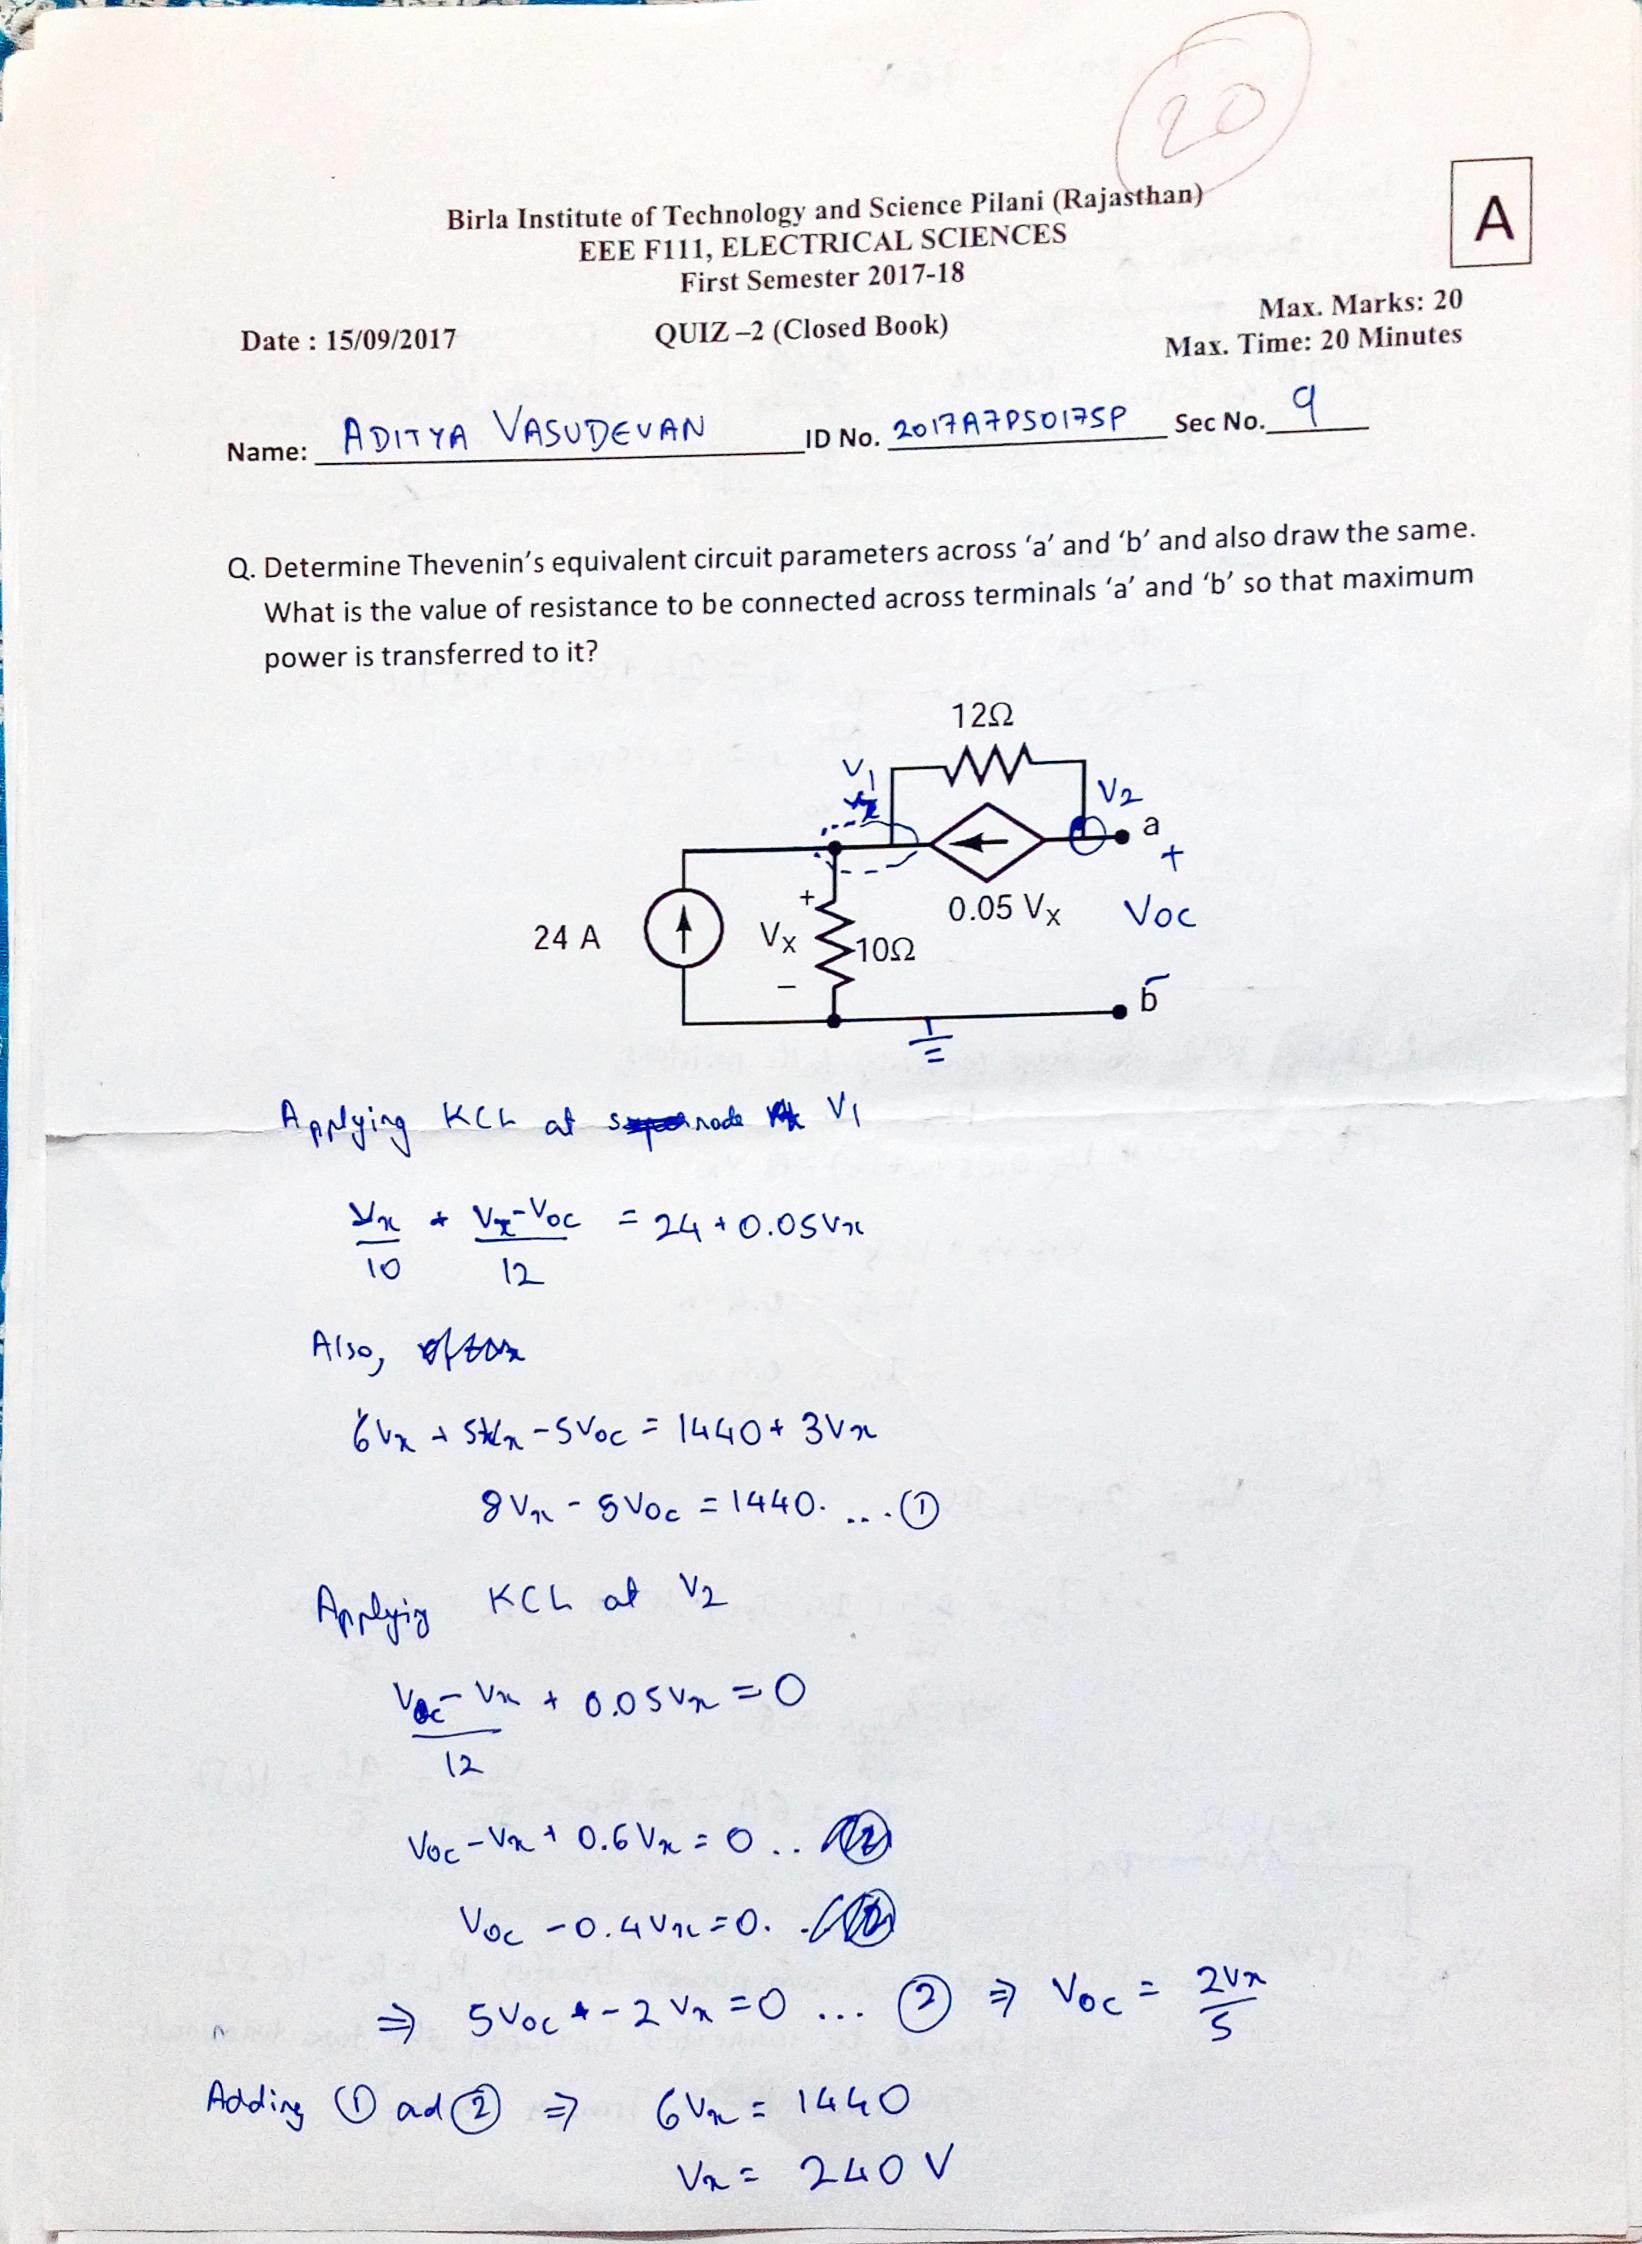 20
A
Birla Institute of Technology and Science Pilani (Rajasthan)
EEE F111, ELECTRICAL SCIENCES
First Semester 2017-18
Date : 15/09/2017
QUIZ –2 (Closed Book)
Max. Marks: 20
Max. Time: 20 Minutes
Name: ADITYA VASUDEVAN ID No. 2017A7PS0175P Sec No. 9
Q. Determine Thevenin's equivalent circuit parameters across 'a' and 'b' and also draw the same.
What is the value of resistance to be connected across terminals 'a' and 'b' so that maximum
power is transferred to it?
12Ω
V1
V2
a
+
0.05 Vx
Voc
24 A
+
Vx
10Ω
–
–
b
Applying KCL at node V1
Vx/10 + (Vx-Voc)/12 = 24 + 0.05Vx
Also,
6Vx + 5Vx - 5Voc = 1440 + 3Vx
8Vx - 5Voc = 1440. ... ①
Applying KCL at V2
(Voc - Vx)/12 + 0.05Vx = 0
Voc - Vx + 0.6Vx = 0 ..
Voc - 0.4Vx = 0.
⇒ 5Voc - 2Vx = 0 ... ② ⇒ Voc = 2Vx/5
Adding ① ad ② ⇒ 6Vx = 1440
Vx = 240 V